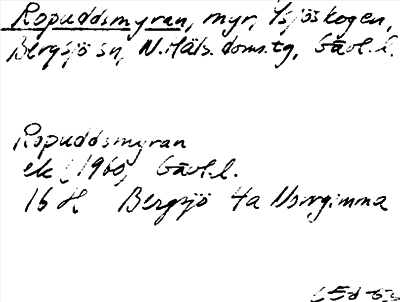 Ropuddsmyran, myr, Ysjöskogen,
Bergsjö sn, N.Häls.doms.tg, Gävl.l.
Ropuddsmyran
ek (1960) Gävl.l.
16 H Bergsjö 4a Norrgimma